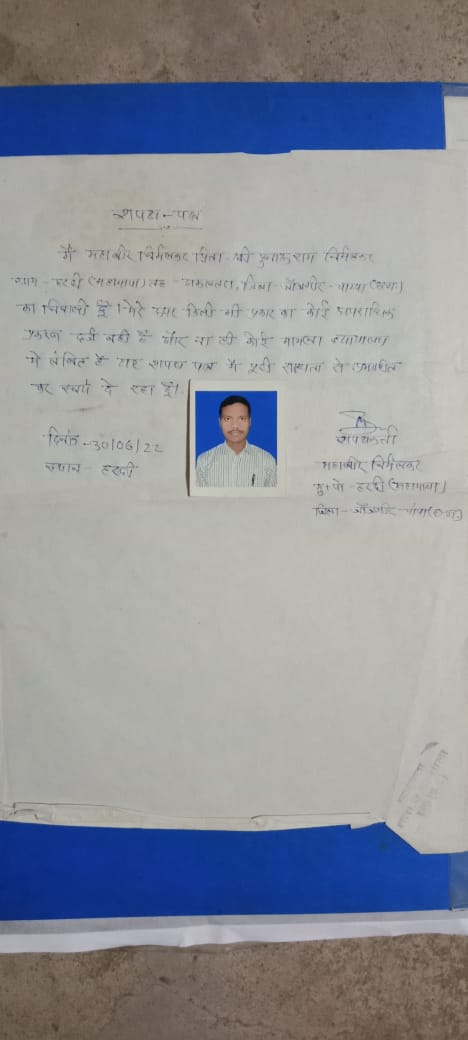 शपथ-पत्र
मैं महावीर निर्मलकर पिता श्री राम निर्मलकर
ग्राम-हरदी (महामाया) जिला-जाँजगीर-चाम्पा (छ.ग.)
का निवासी हूँ। मेरे ऊपर किसी भी प्रकार का कोई अपराधिक
प्रकरण दर्ज नहीं है और ना ही कोई मामला न्यायालय
में लंबित है यह शपथ पत्र मैं पूरी सत्यता से
कर स्वयं दे रहा हूँ।
दिनांक-30/06/22
स्थान-हरदी
शपथकर्ता
महावीर निर्मलकर
मु+पो-हरदी (महामाया)
जिला-जाँजगीर-चांपा (छ.ग.)